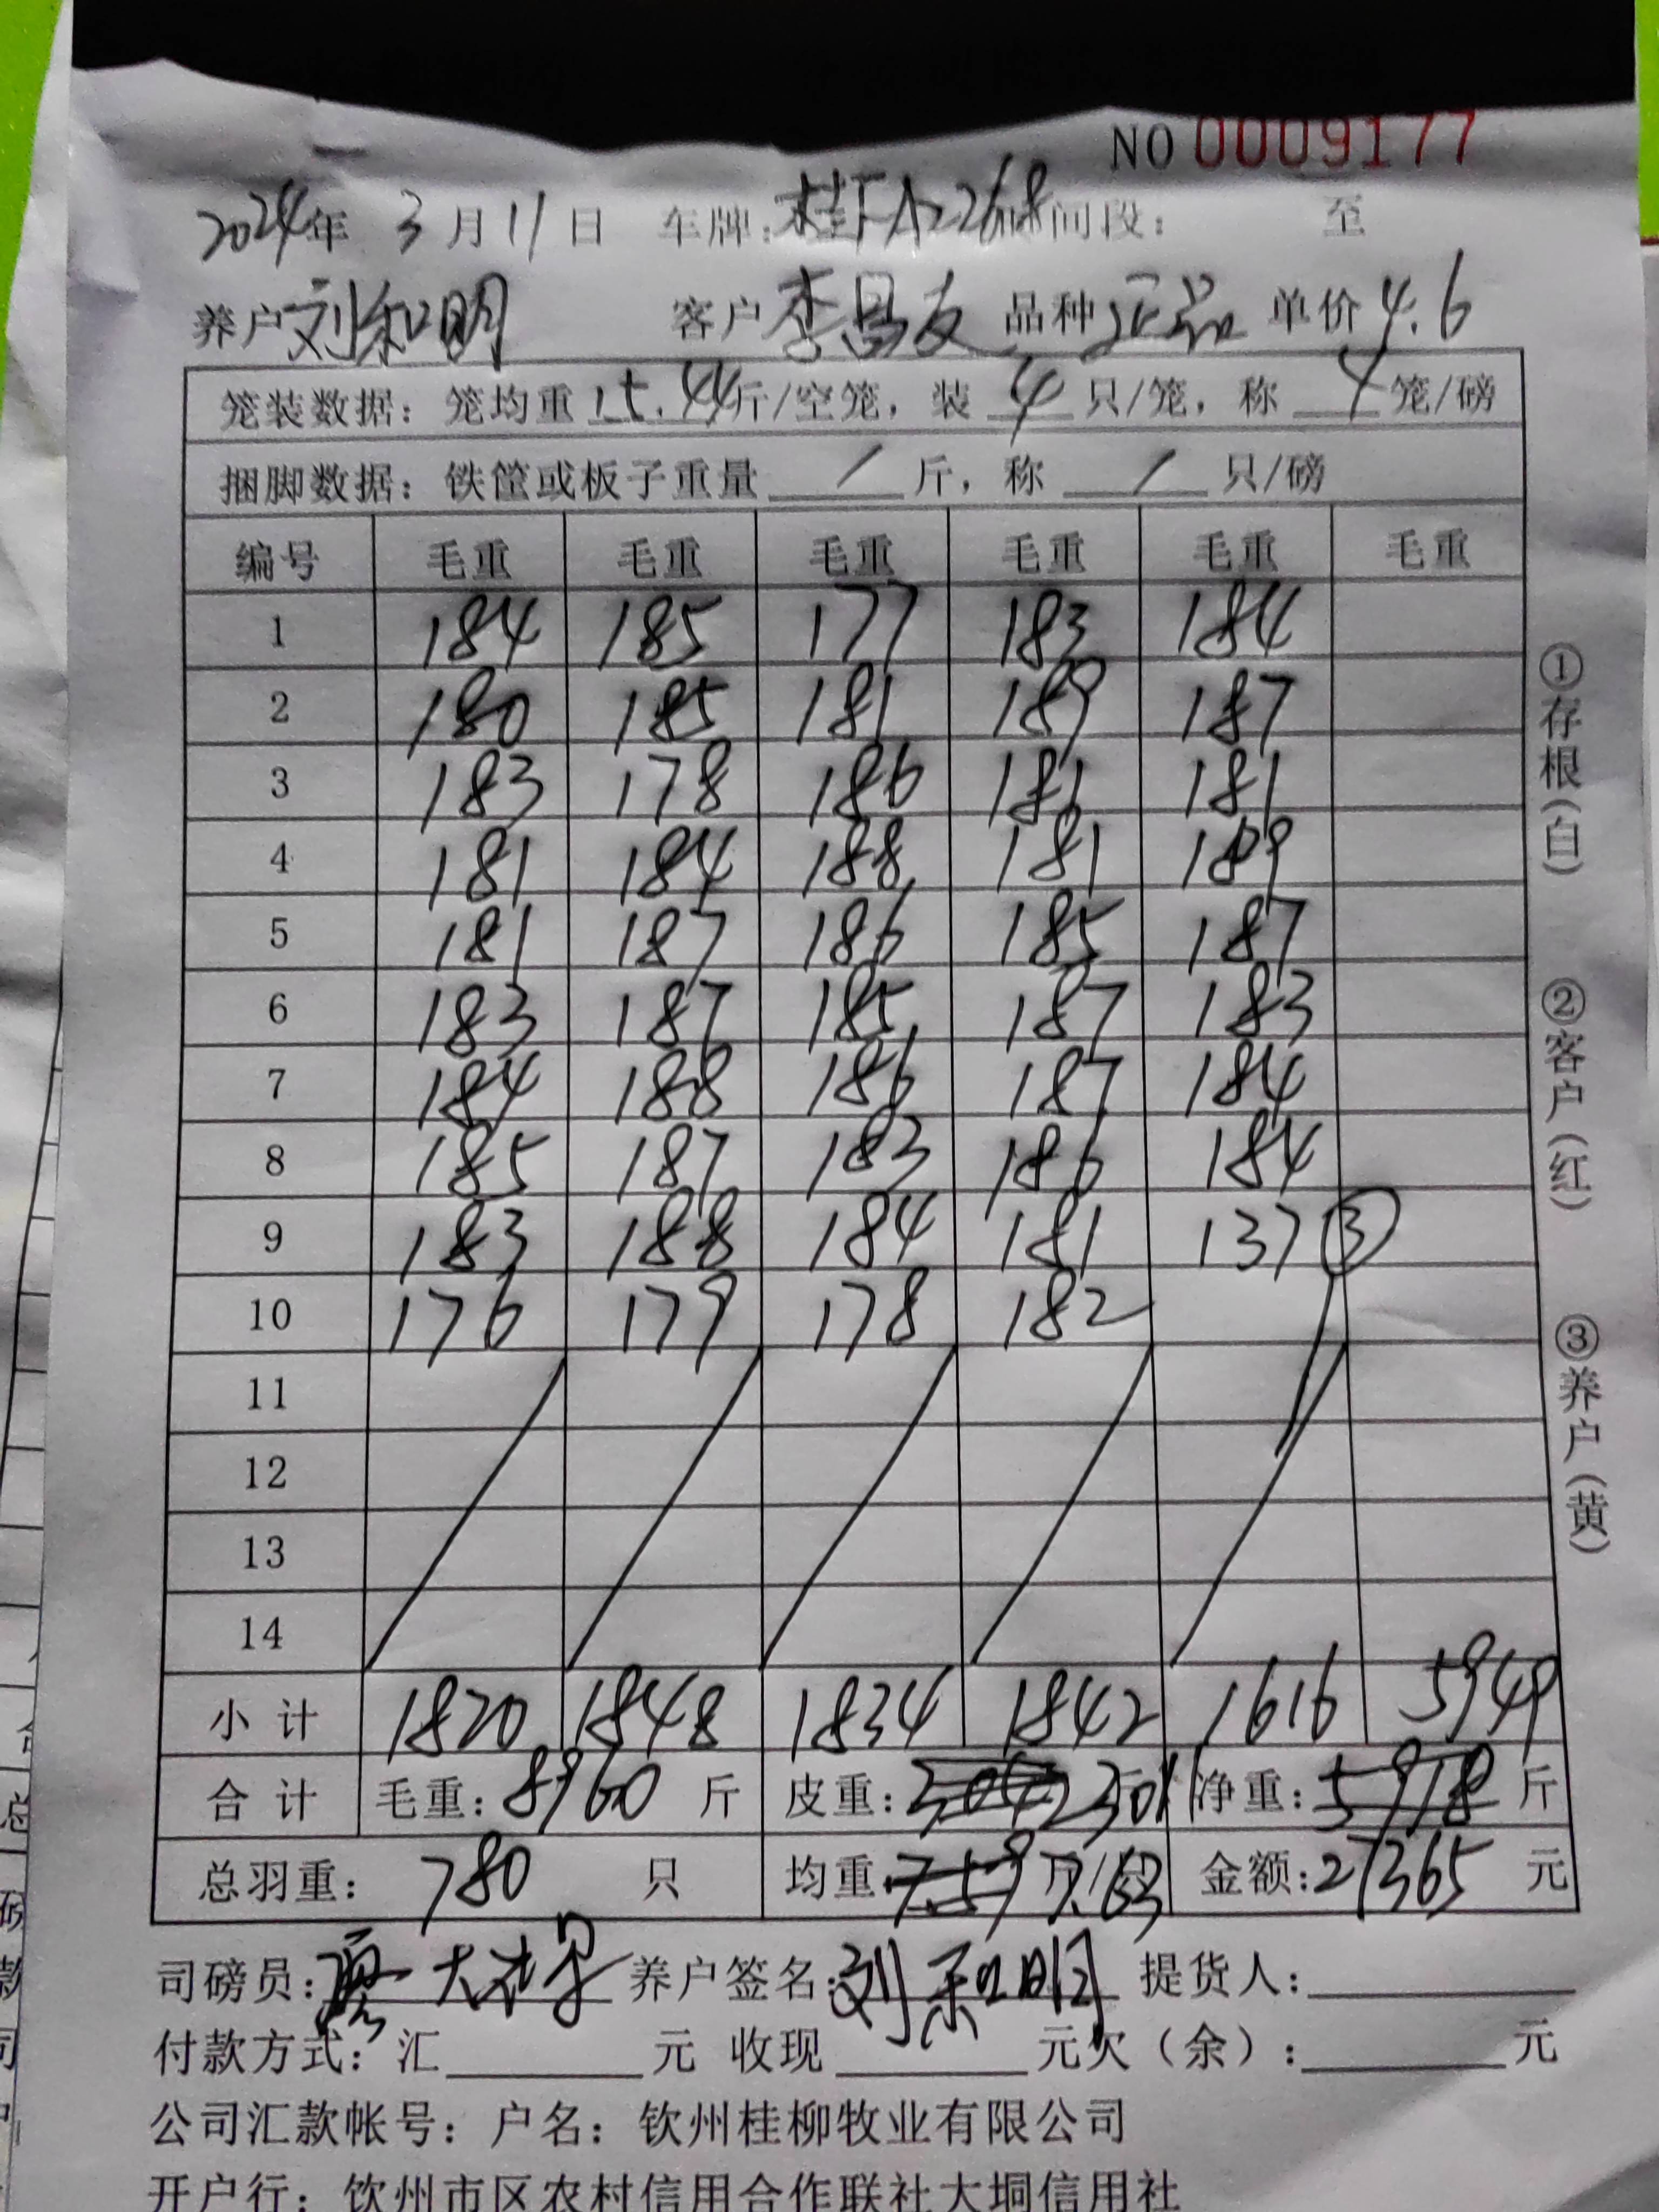 NO 0009177
2024年 3月11日 车牌:桂FA2268 时间段: 至
养户刘和明 客户李昌友 品种正品 单价4.6
笼装数据：笼均重15.44斤/空笼，装4只/笼，称4笼/磅
捆脚数据：铁筐或板子重量/斤，称/只/磅
编号 毛重 毛重 毛重 毛重 毛重 毛重
1 184 185 177 183 184
2 180 185 181 189 187
3 183 178 186 181 181
4 181 184 188 181 189
5 181 187 186 185 187
6 183 187 185 187 183
7 184 188 186 187 184
8 185 187 183 186 184
9 183 188 184 181 137③
10 176 179 178 182
11
12
13
14
小计 1820 1848 1834 1842 1616 5949
合计 毛重:8960斤 皮重:3042 3011 净重:5918斤
总羽重:780只 均重7.59 7.63 金额:27365元
司磅员: 养户签名:刘和明 提货人:
付款方式：汇 元 收现 元欠（余）: 元
公司汇款帐号：户名：钦州桂柳牧业有限公司
开户行：钦州市区农村信用合作联社大垌信用社
①存根(白) ②客户(红) ③养户(黄)